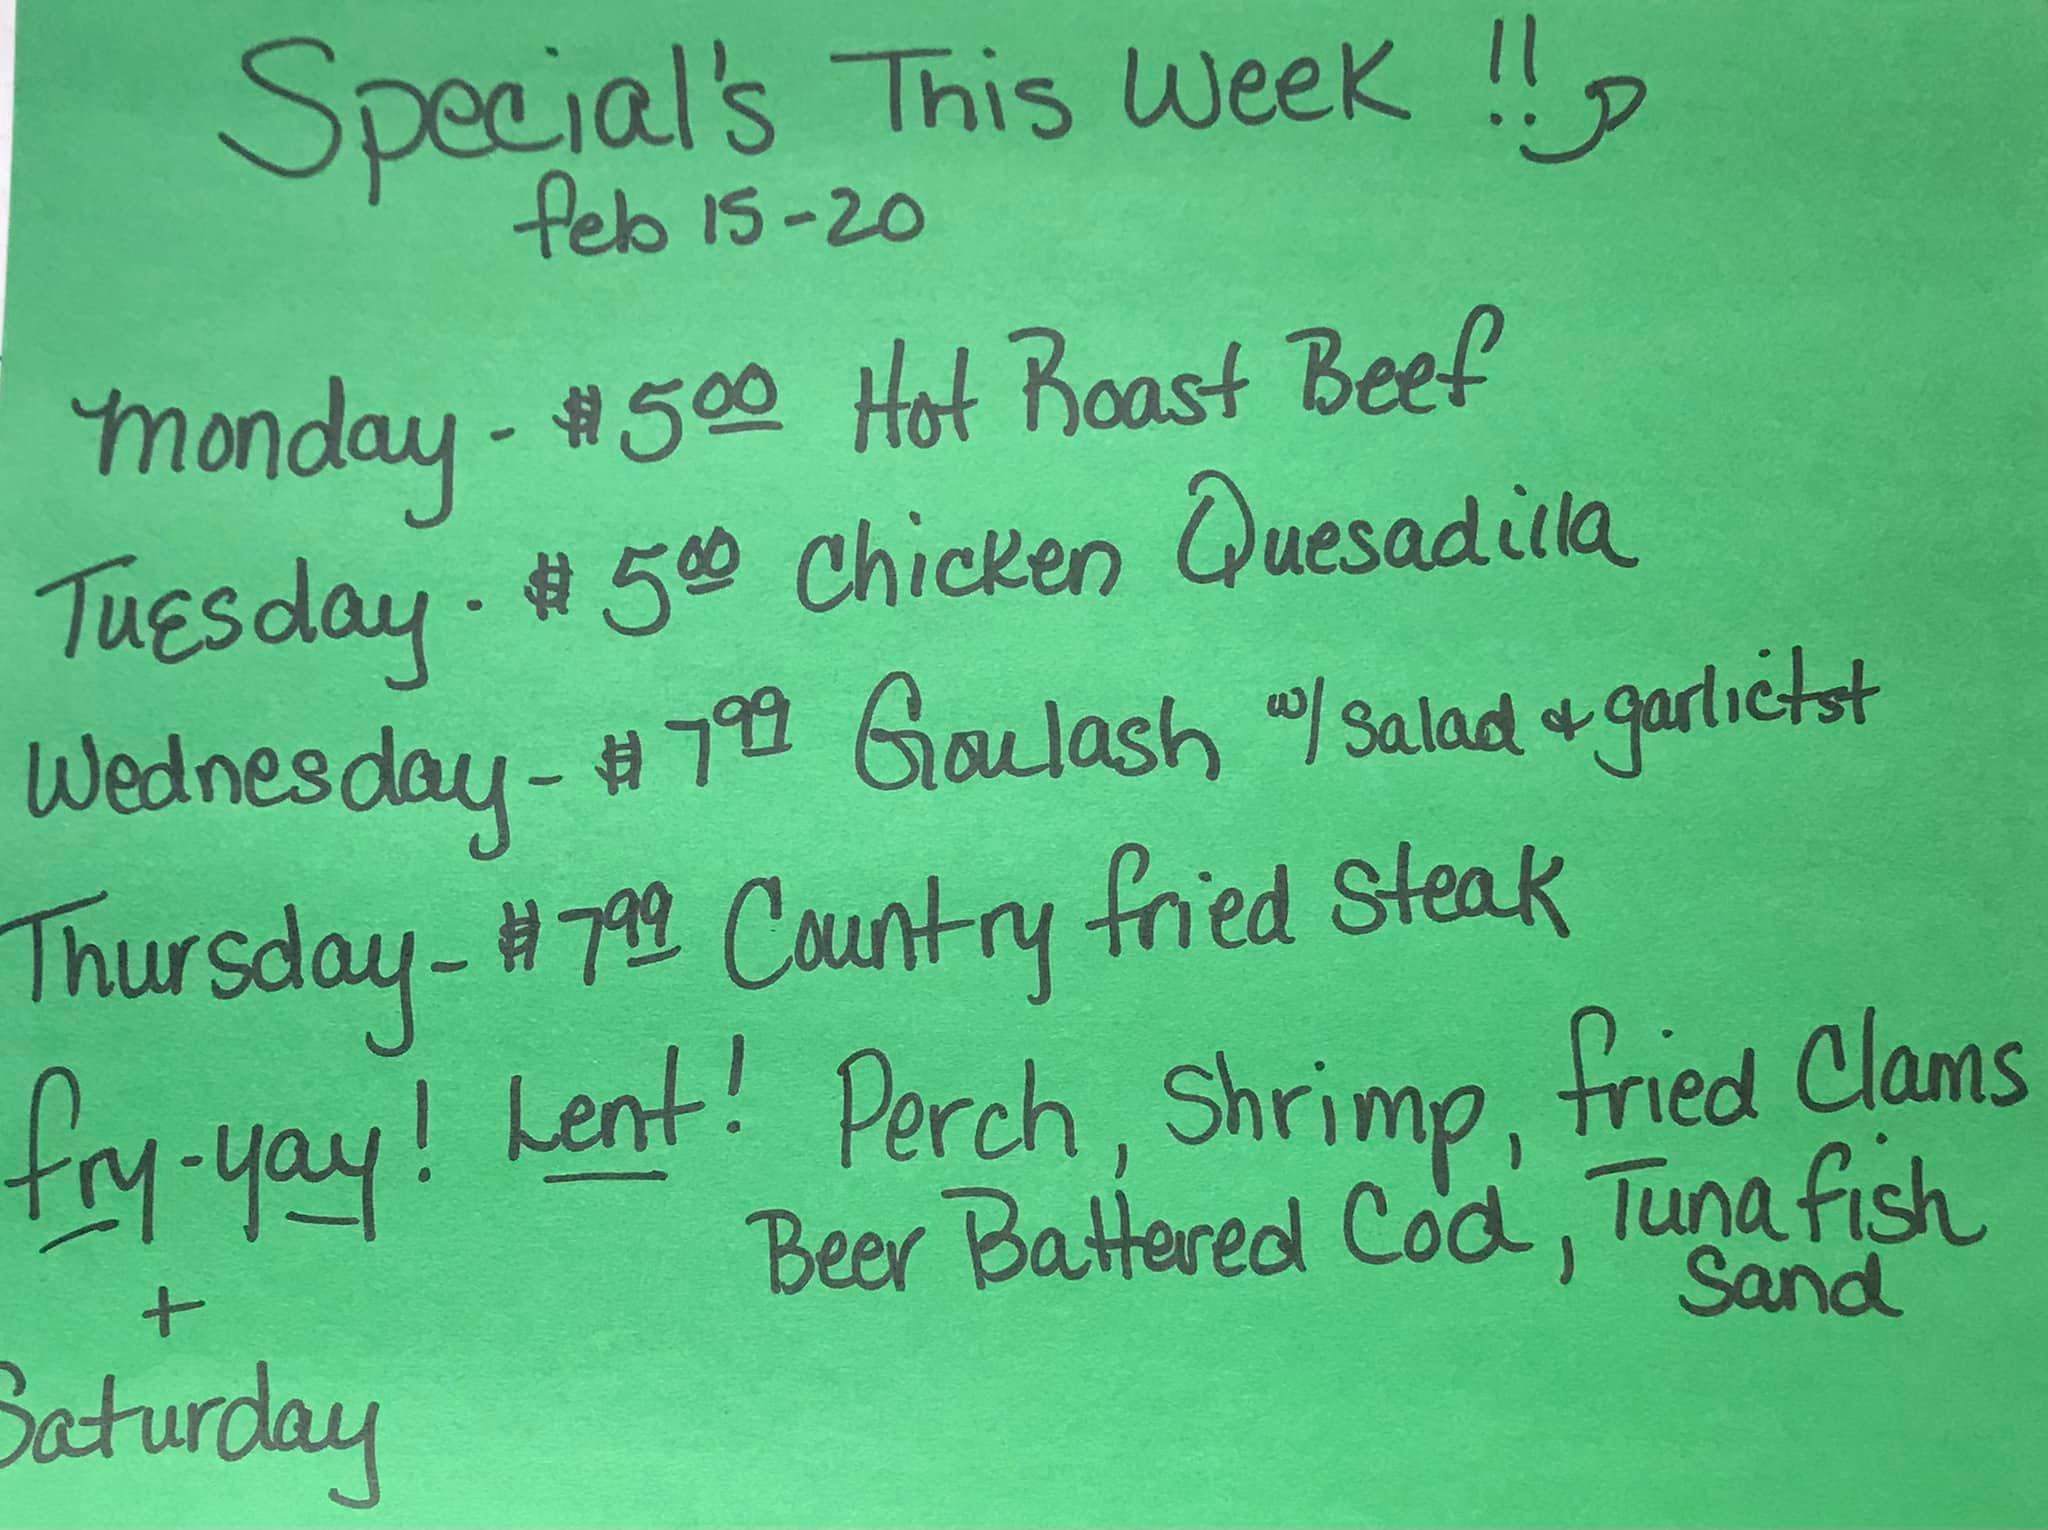 Special's This Week !!
feb 15-20
Monday - $5.00 Hot Roast Beef
Tuesday - $5.00 Chicken Quesadilla
Wednesday - $7.99 Goulash w/ salad & garlictst
Thursday - $7.99 Country fried Steak
fry-yay! Lent! Perch, Shrimp, fried Clams
Beer Battered Cod, Tuna fish
Sand
+
Saturday